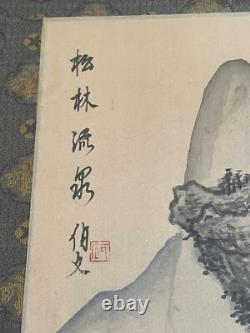 松林流泉
伯文